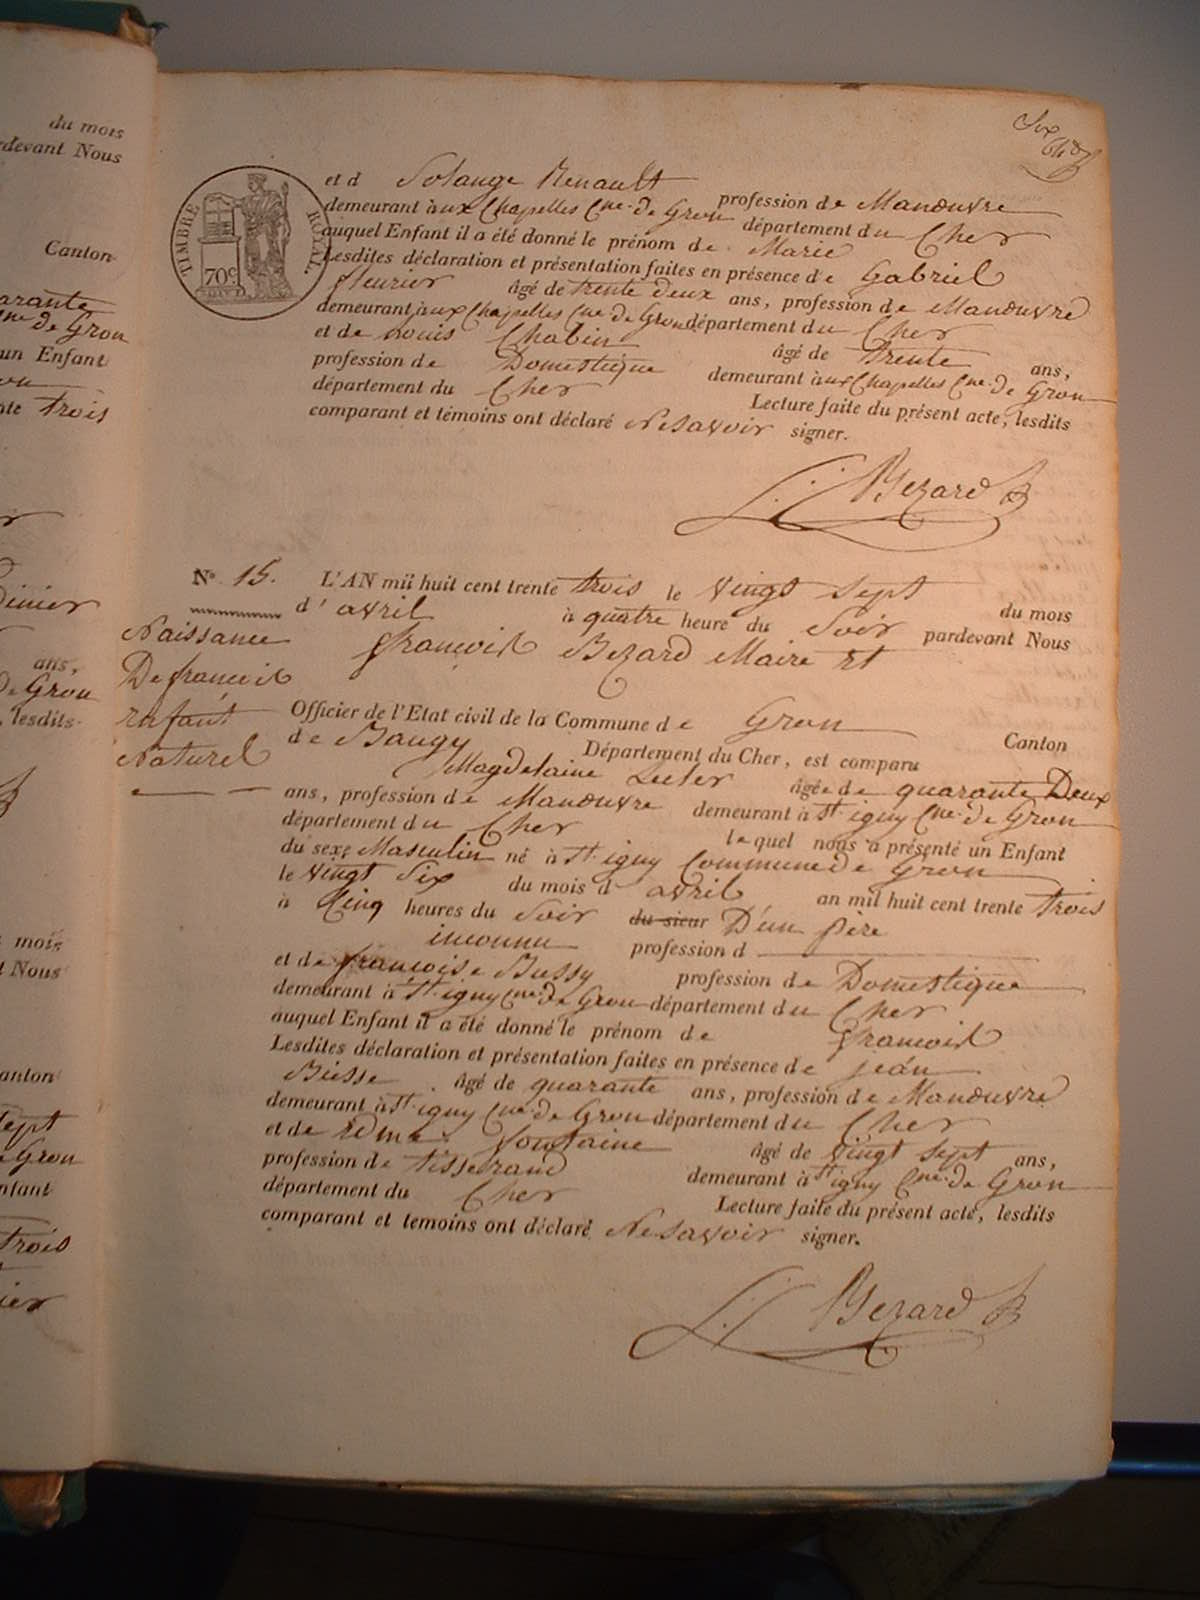 du mois
rdevant Nous
Canton
arante
ne de Gron
un Enfant
te trois
inier
ans,
de Gron
, lesdits
mois
t Nous
anton
sept
e Gron
nfant
trois
ier
Six
TIMBRE ROYAL.
70c
et d Solange Renault profession de Manœuvre
demeurant à aux Chapelles Cne. de Gron département du Cher
auquel Enfant il a été donné le prénom de Marie
Lesdites déclaration et présentation faites en présence de Gabriel
fleurier âgé de trente deux ans, profession de Manœuvre
demeurant à aux Chapelles Cne de Gron département du Cher
et de Louis Chabin âgé de trente ans,
profession de Domestique demeurant à aux Chapelles Cne. de Gron
département du Cher Lecture faite du présent acte, lesdits
comparant et témoins ont déclaré Ne savoir signer.
Bezard
No. 15. L'AN mil huit cent trente trois le vingt sept du mois
d'avril à quatre heure du Soir pardevant Nous
françois Bezard Maire et
Naissance
De françois
enfant
Naturel
Officier de l'Etat civil de la Commune de Gron Canton
de Baugy Département du Cher, est comparu
Magdelaine âgée de quarante Deux
ans, profession de Manœuvre demeurant à St. igny Cne. de Gron
département du Cher le quel nous a présenté un Enfant
du sexe Masculin né à St. igny Commune de Gron
le vingt Six du mois d'avril an mil huit cent trente trois
à Cinq heures du Soir du sieur D'un père
inconnu profession d
et de françoise Bussy profession de Domestique
demeurant à St. igny Cne. de Gron département du Cher
auquel Enfant il a été donné le prénom de françois
Lesdites déclaration et présentation faites en présence de jean
Busse âgé de quarante ans, profession de Manœuvre
demeurant à St. igny Cne. de Gron département du Cher
et de edme fontaine âgé de vingt sept ans,
profession de tisserand demeurant à St igny Cne. de Gron
département du Cher Lecture faite du présent acte, lesdits
comparant et temoins ont déclaré Ne savoir signer.
Bezard